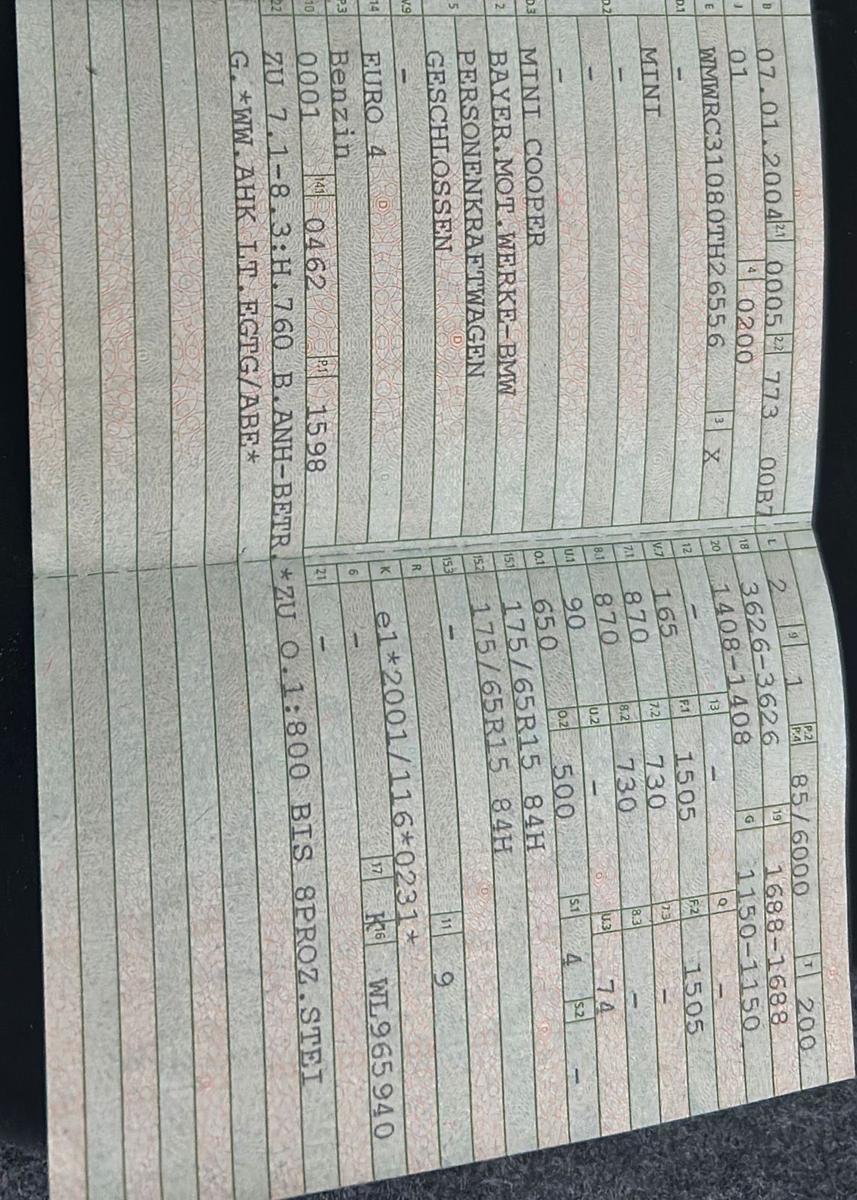 B 07.01.2004 2.1 0005 2.2 773 00B7
J 01 4 0200
E WMWRC31080TH26556 3 X
D.1 -
MINI
D.2 -
-
-
D.3 MINI COOPER
2 BAYER.MOT.WERKE-BMW
5 PERSONENKRAFTWAGEN
GESCHLOSSEN
V.9 -
14 EURO 4
P.3 Benzin
10 0001 14.1 0462 P.1 1598
22 ZU 7.1-8.3:H.760 B.ANH-BETR.*ZU O.1:800 BIS 8PROZ.STEI
G.*WW.AHK LT.EGTG/ABE*
L 2 9 1 P.2 P.4 85/6000 T 200
18 3626-3626 19 1688-1688
20 1408-1408 G 1150-1150
12 - 13 - Q -
V.7 165 F.1 1505 F.2 1505
7.1 870 7.2 730 7.3 -
8.1 870 8.2 730 8.3 -
U.1 90 U.2 - U.3 74
O.1 650 O.2 500 S.1 4 S.2 -
15.1 175/65R15 84H
15.2 175/65R15 84H
15.3 -
R - 11 9
K e1*2001/116*0231*
6 - 17 K 16 WL965940
21 -